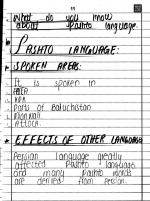 What do you know
about Pashto language.
PASHTO LANGUAGE:
SPOKEN AREAS:
It is spoken in
KPK
Parts of Baluchistan
Attock.
EFFECTS OF OTHER LANGUAGE
Persian language greatly
affected Pashto language
and many Pashto words
are derived from persian.